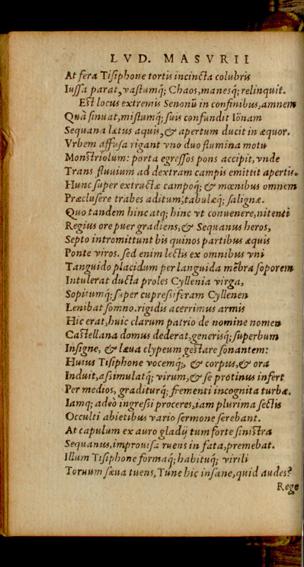 LVD. MASVRII
At fera Tisiphone tortis incincta colubris
Iussa parat, vastumq́; Chaos, manesq́; relinquit.
Est locus extremis Senonū in confinibus, amnem
Quà sinuat, mistumq́; suis confundit Iōnam
Sequana latus aquis, & apertum ducit in æquor.
Vrbem affusa rigant vno duo flumina motu
Monstriolum: porta egressos pons accipit, vnde
Trans fluuium ad dextram campis emittit apertis.
Hunc super extructæ campoq́; & mœnibus omnem
Præclusere trabes aditum, tabulæq́; salignæ.
Quo tandem hinc atq; hinc vt conuenere, nitenti
Regius ore puer gradiens, & Sequanus heros,
Septo intromittunt bis quinos partibus æquis
Ponte viros. sed enim lectis ex omnibus vni
Tanguido placidum per languida mēbra soporem
Intulerat ducta proles Cyllenia virga,
Sopitumq́; super cupressiferam Cyllenen
Lenibat somno. rigidis acerrimus armis
Hic erat, huic clarum patrio de nomine nomen
Castellana domus dederat, generisq́; superbum
Insigne, & læua clypeum gestare sonantem:
Huius Tisiphone vocemq́;, & corpus, & ora
Induit, assimulatq́; virum, & se protinus infert
Per medios, graditurq́; frementi incognita turbæ.
Iamq́; adeò ingressi proceres, iam plurima sectis
Occulti abietibus vario sermone serebant.
At capulum ex auro gladij tum forte sinistra
Sequanus, improuisa ruens in fata, premebat.
Illum Tisiphone formaq́; habituq́; virili
Toruum sæua tuens, Tune hic insane, quid audes?
Rege